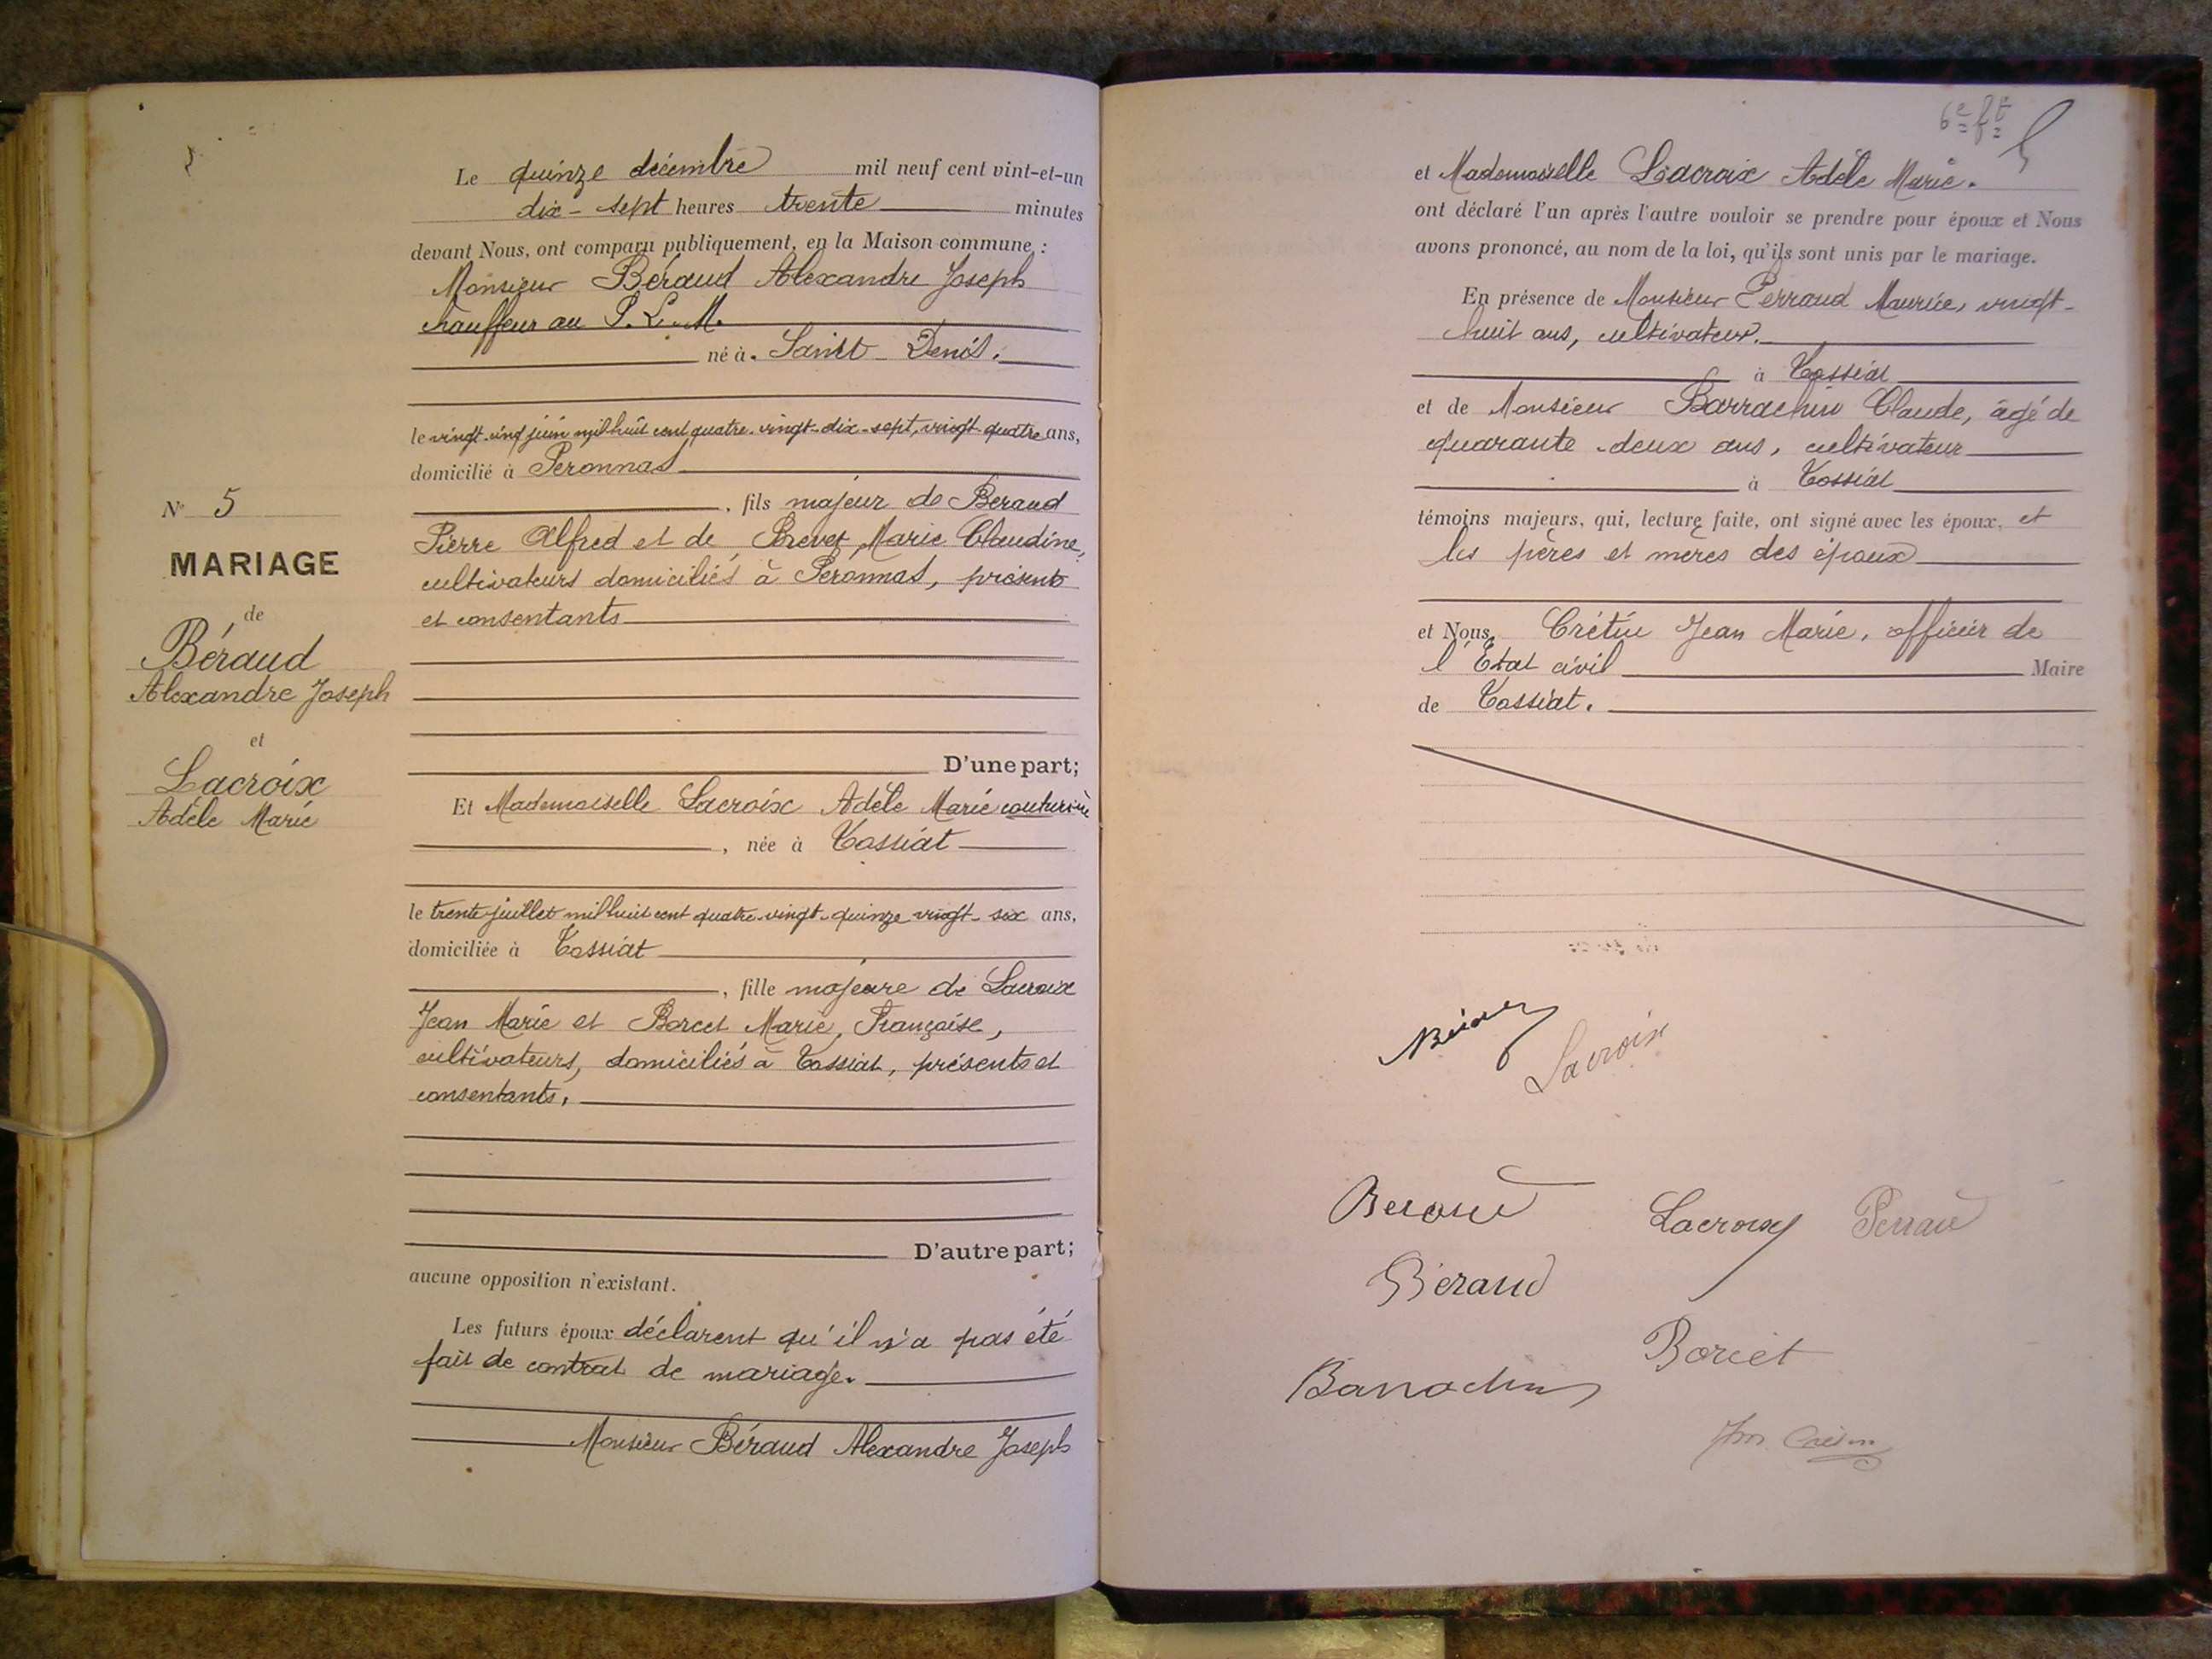 Le quinze décembre mil neuf cent vint-et-un
dix-sept heures trente minutes
devant Nous, ont comparu publiquement, en la Maison commune :
Monsieur Béraud Alexandre Joseph
chauffeur au P.L.M.
né à Saint Denis.
le vingt-cinq juin mil huit cent quatre-vingt-dix-sept, vingt-quatre ans,
domicilié à Peronnas
, fils majeur de Beraud
Pierre Alfred et de Brevet Marie Claudine,
cultivateurs domiciliés à Peronnas, présents
et consentants
N° 5
MARIAGE
de
Béraud
Alexandre Joseph
et
Lacroix
Adèle Marie
D'une part;
Et Mademoiselle Lacroix Adèle Marie couturière
, née à Tossiat
le trente juillet mil huit cent quatre-vingt-quinze vingt-six ans,
domiciliée à Tossiat
, fille majeure de Lacroix
Jean Marie et Borcet Marie, Française,
cultivateurs, domiciliés à Tossiat, présents et
consentants,
D'autre part;
aucune opposition n'existant.
Les futurs époux déclarent qu'il n'a pas été
fait de contrat de mariage.
Monsieur Béraud Alexandre Joseph
6e ft
et Mademoiselle Lacroix Adèle Marie.
ont déclaré l'un après l'autre vouloir se prendre pour époux et Nous
avons prononcé, au nom de la loi, qu'ils sont unis par le mariage.
En présence de Monsieur Perraud Maurice, vingt-
huit ans, cultivateur.
à Tossiat
et de Monsieur Barrachin Claude, âgé de
quarante-deux ans, cultivateur
à Tossiat
témoins majeurs, qui, lecture faite, ont signé avec les époux, et
les pères et mères des époux
et Nous, Crétin Jean Marie, officier de
l'État civil Maire
de Tossiat.
Lacroix
Beraud
Lacroix
Perraud
Béraud
Borcet
Barrachin